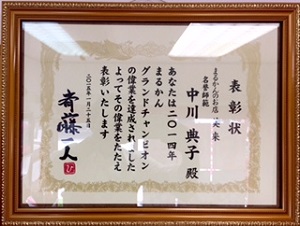 表彰状
まるかんのお店 未来
名誉師範
中川 典子 殿
あなたは二〇一四年
まるかん
グランドチャンピオン
の偉業を達成されました
よってその偉業をたたえ
表彰いたします
二〇一五年一月二十五日
斉藤一人
ひ